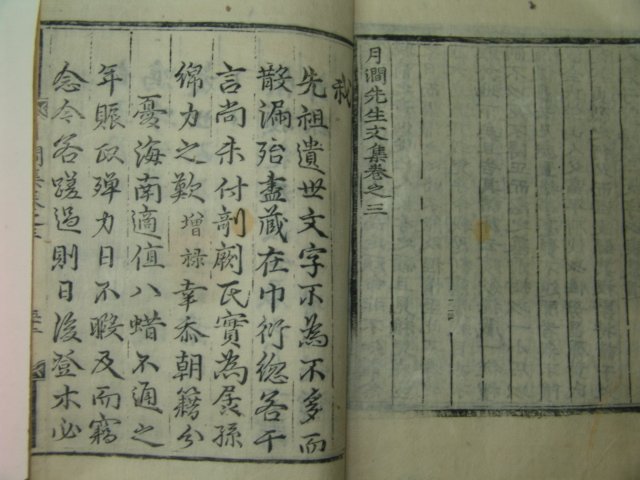 月澗先生文集卷之三
跋
先祖遺世文字不為不多而
散漏殆盡藏在巾衍緫若干
言尚未付剞劂氏實為孱孫
綿力之歎增祿幸忝朝籍分
憂海南適值八蜡不通之
年賑政殫力日不暇及而竊
念今若蹉過則日後登木必